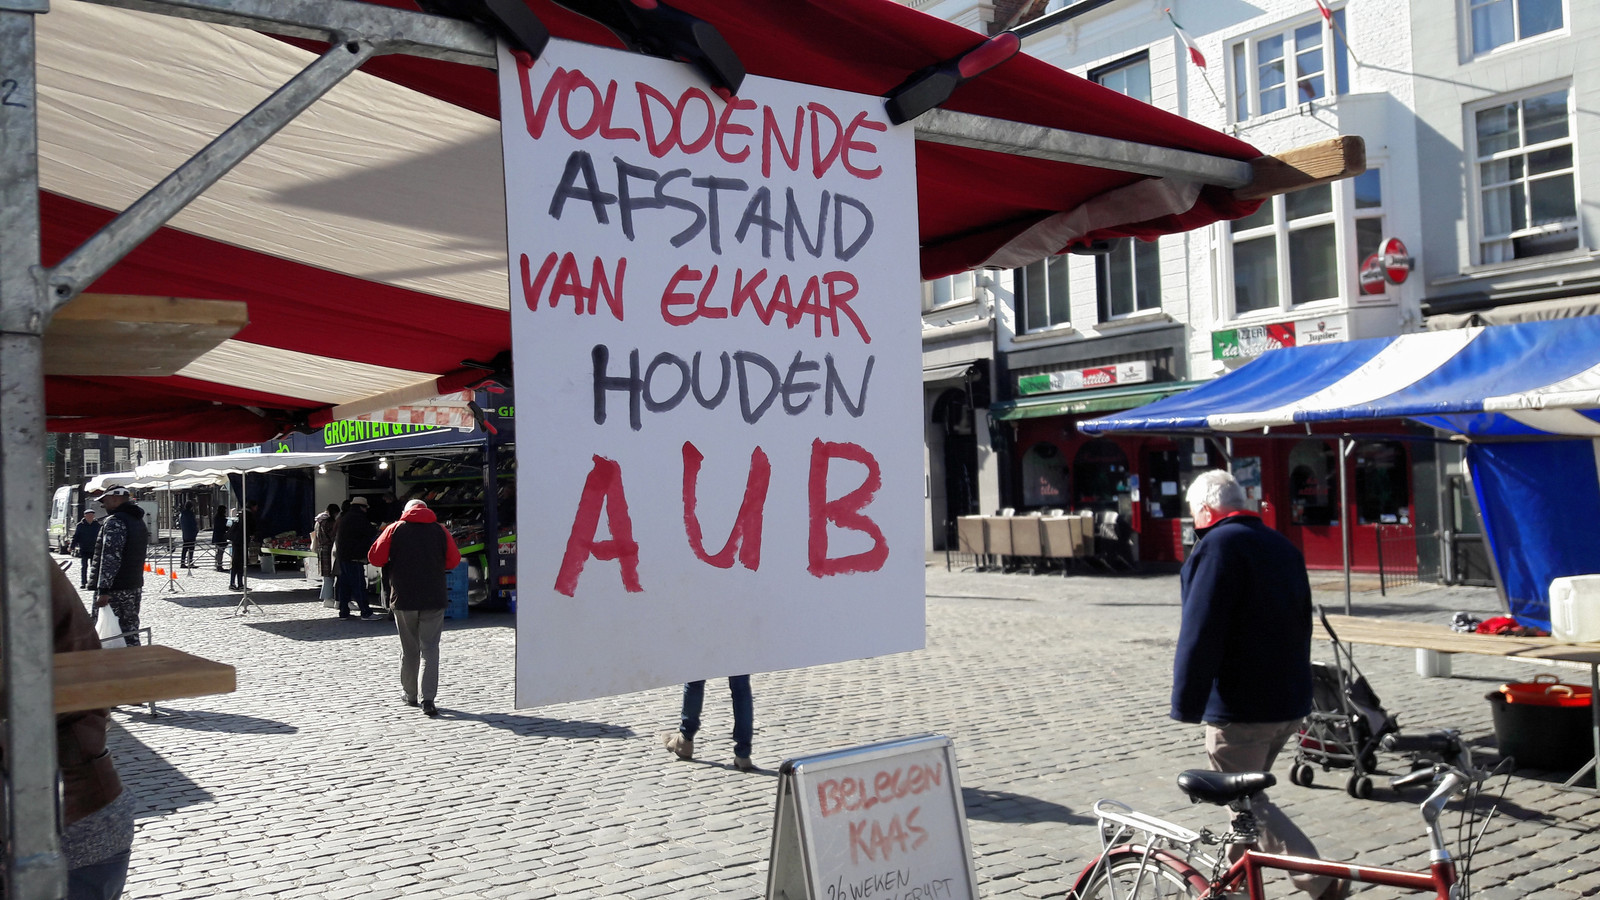 VOLDOENDE
AFSTAND
VAN ELKAAR
HOUDEN
AUB
2
GROENTEN &
Jupiler
BELEGEN
KAAS
26 WEKEN